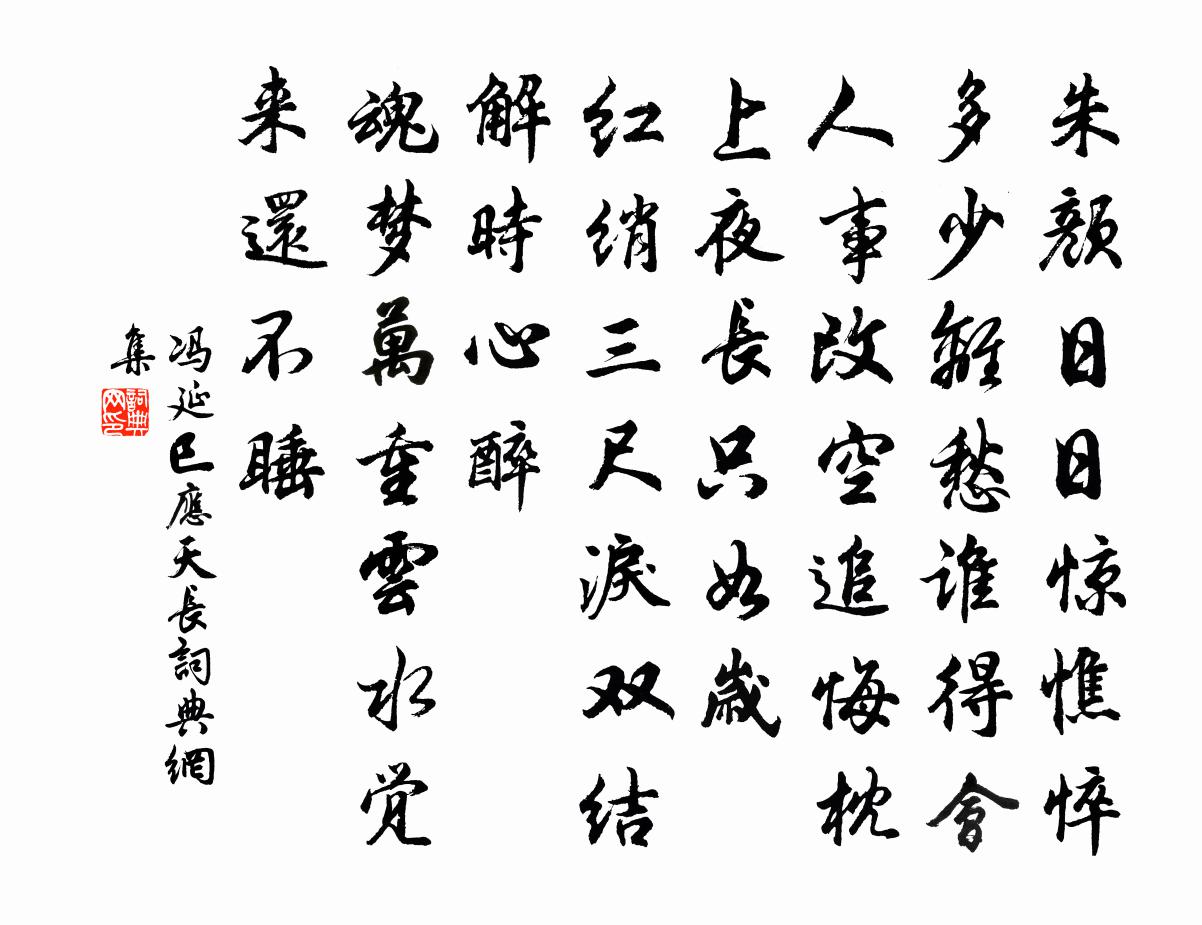 朱颜日日惊憔悴
多少離愁谁得會
人事改空追悔枕
上夜長只如歲
红绡三尺淚双结
解時心醉
魂梦萬重雲水觉
来還不睡
冯延巳應天長詞典網
集
詞典網印